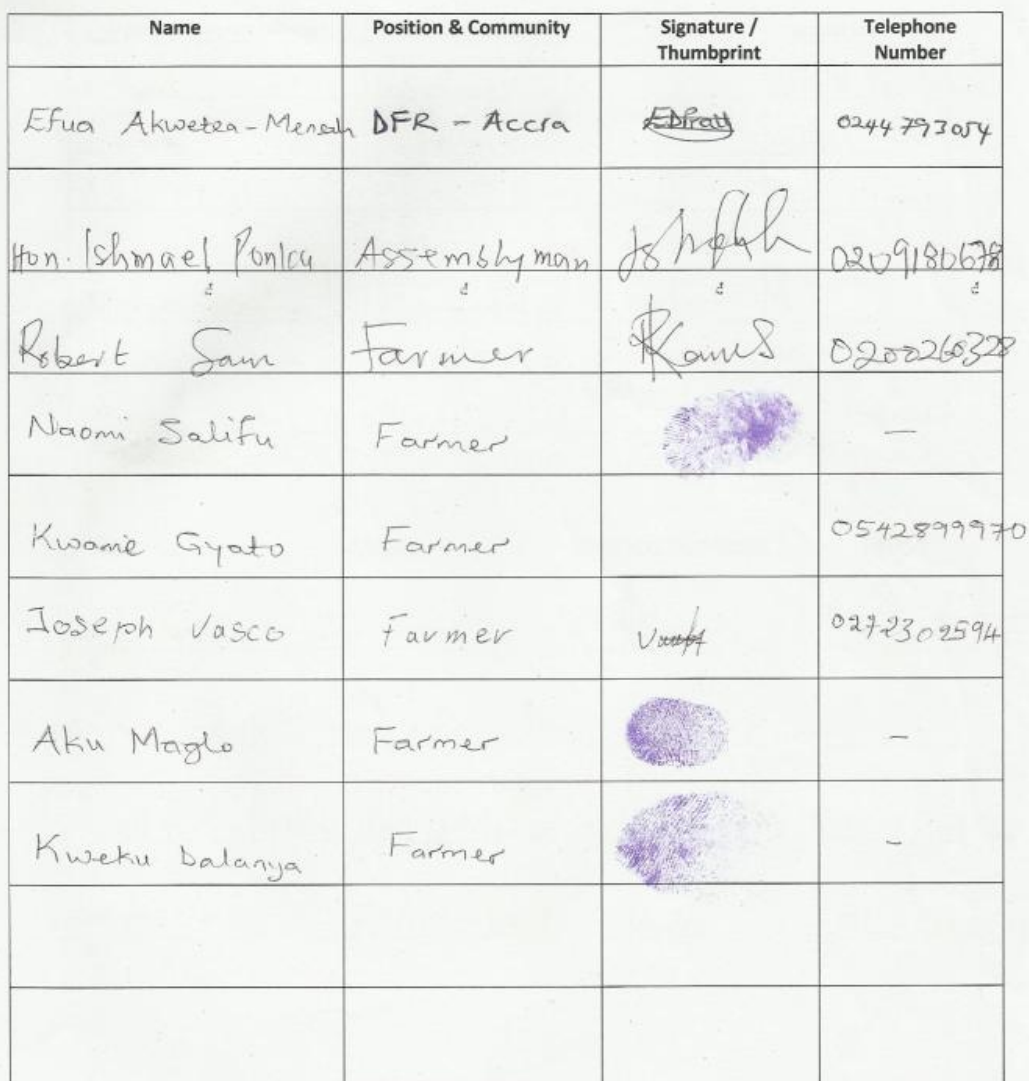 Name Position & Community Signature / Thumbprint Telephone Number
Efua Akwetea-Mensah DFR - Accra 0244 793054
Hon. Ishmael Assemblyman 0209180678
Robert Sam Farmer 0200260328
Naomi Salifu Farmer —
Kwame Gyato Farmer 0542899970
Joseph Vasco Farmer 0272302594
Aku Maglo Farmer -
Kweku balanya Farmer -